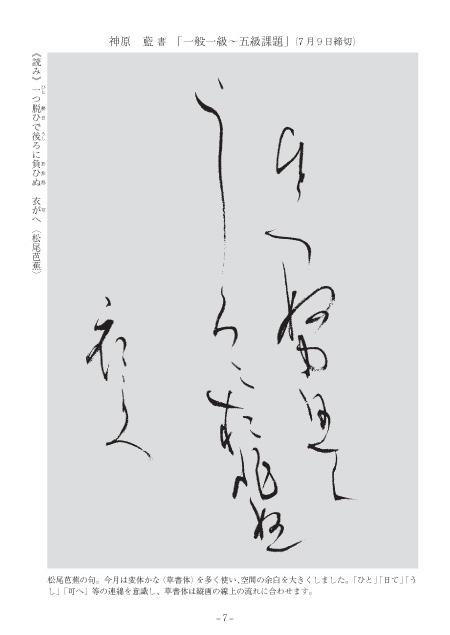 神原 藍 書 「一般一級〜五級課題」(7月9日締切)
《読み》一つ脱ひで後ろに負ひぬ 衣がへ（松尾芭蕉）
ひとつぬ 日て
うしろに
衣可へ
松尾芭蕉の句。今月は変体かな（草書体）を多く使い、空間の余白を大きくしました。「ひと」「日て」「う
し」「可へ」等の連綿を意識し、草書体は縦画の線上の流れに合わせます。
－7－